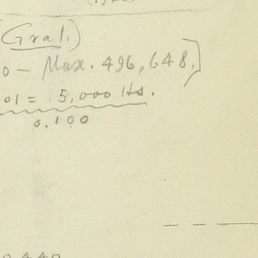 (Gral.)
0 - Max. 496,648.]
01 = 5,000 Hs.
0.100